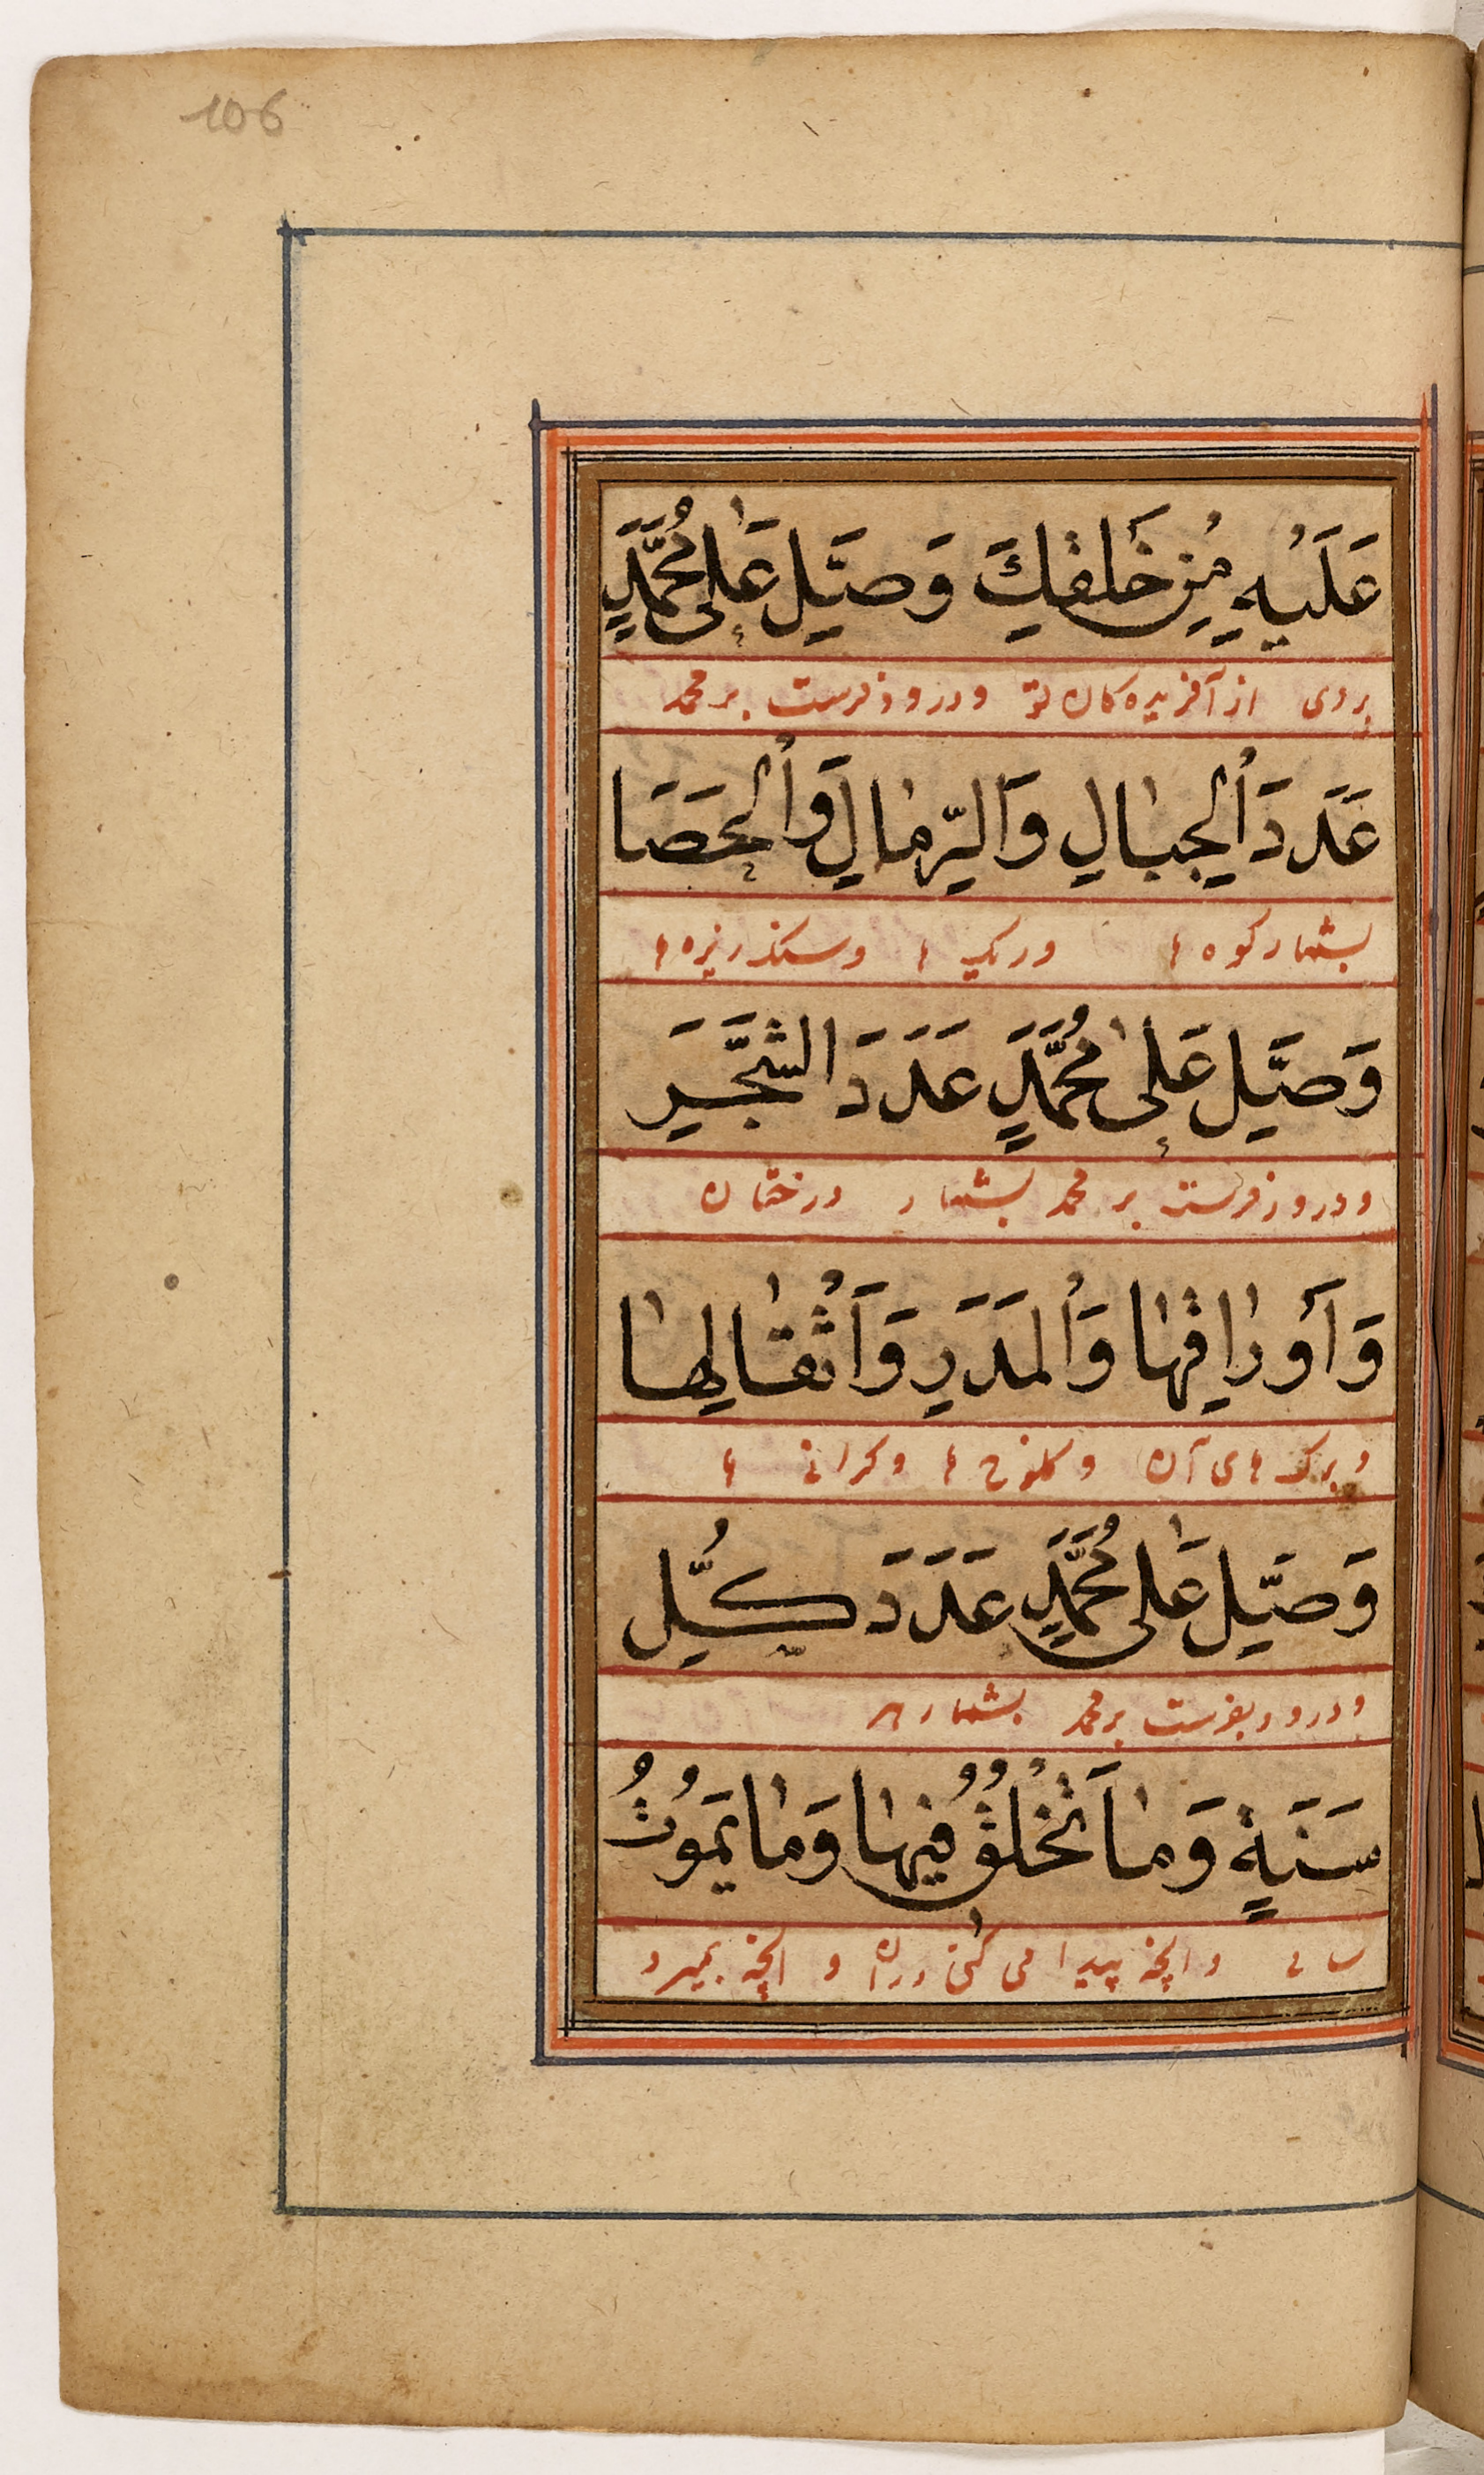 106
عَلَيْهِ مِنْ خَلْقِكَ وَصَلِّ عَلٰى مُحَمَّدٍ
بروی از آفریده کان تو ودرود فرست بر محمد
عَدَدَ الْجِبَالِ وَالرِّمَالِ وَالْحَصَا
بشمار کوه ها وریک ها وسنکریزه ها
وَصَلِّ عَلٰى مُحَمَّدٍ عَدَدَ الشَّجَرِ
ودرود فرست بر محمد بشمار درختان
وَأَوْرَاقِهَا وَالْمَدَرِ وَأَثْقَالِهَا
وبرک های آن وکلوخ ها وکرانی ها
وَصَلِّ عَلٰى مُحَمَّدٍ عَدَدَ كُلِّ
ودرود بفرست بر محمد بشمار هر
سَنَةٍ وَمَا تَخْلُقُ فِيهَا وَمَا يَمُوتُ
سالی وانچه پیدا می کنی دران و انچه بمیرد